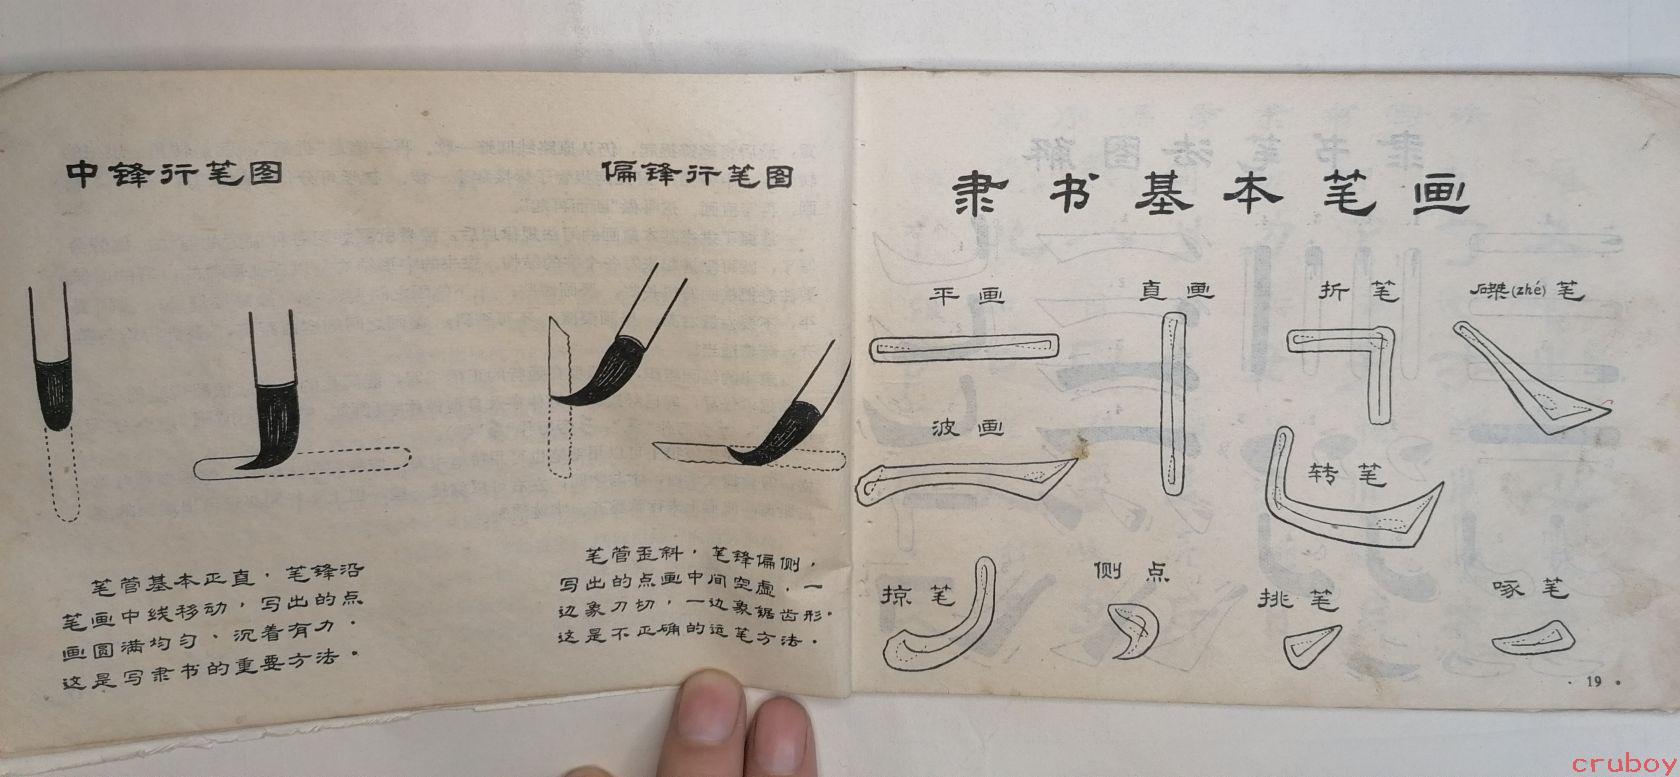 中锋行笔图
笔管基本正直，笔锋沿
笔画中线移动，写出的点
画圆满均匀、沉着有力。
这是写隶书的重要方法。
偏锋行笔图
笔管歪斜，笔锋偏侧，
写出的点画中间空虚，一
边象刀切，一边象锯齿形。
这是不正确的运笔方法。
隶书基本笔画
平画
直画
折笔
磔(zhé)笔
波画
转笔
掠笔
侧点
挑笔
啄笔
· 19 ·
cruboy